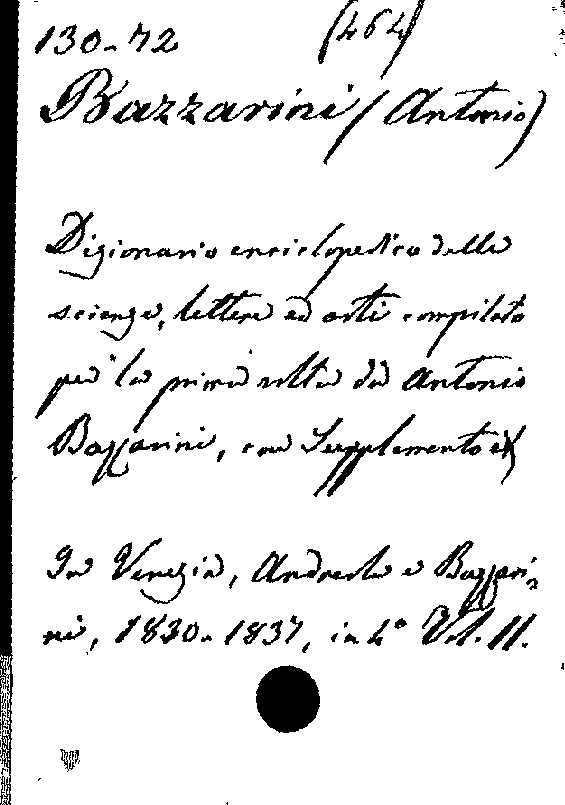 130-72 (464)
Bazzarini (Antonio)
Dizionario enciclopedico delle
scienze, lettere ed arti compilato
per la prima volta da Antonio
Bazzarini, con Supplemento
In Venezia, Andreola e Bazzari-
ni, 1830-1837, in 4° Vol. 11.